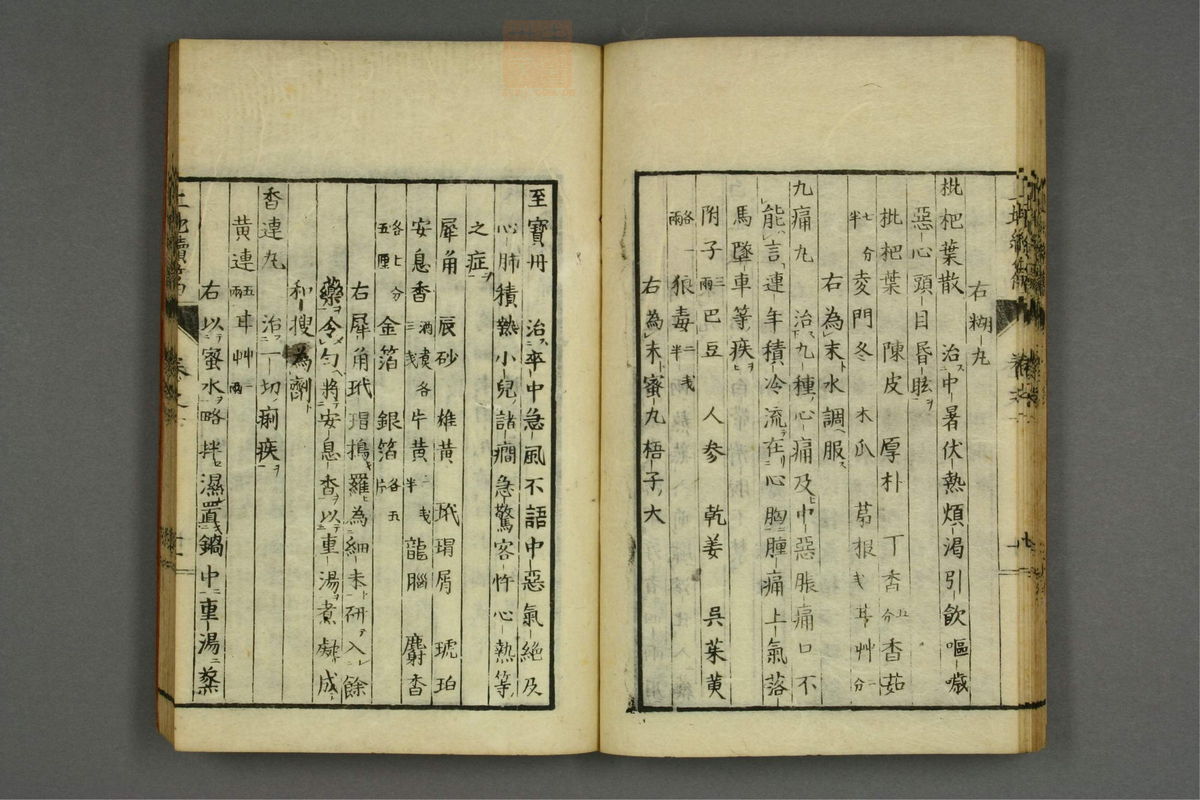 右糊丸
枇杷葉散 治中暑伏熱煩渇引飲嘔噦
惡心頭目昏眩
枇杷葉 陳皮 厚朴 丁香五分 香茹
七分半 麦門冬 木瓜 葛根 甘艸
右為末水調服
九痛丸 治九種心痛及中惡脹痛口不
能言連年積冷流在心胸腫痛上氣落
馬墜車等疾
附子三兩 巴豆 人参 乾姜 呉茱萸
各一兩 狼毒
右為末蜜丸梧子大
至寶丹 治卒中急風不語中惡氣絶及
心肺積熱小兒諸癇急驚客忤心熱等
之症
犀角 辰砂 雄黄 玳瑁屑 琥珀
安息香 牛黄 龍腦 麝香
各七分五厘 金箔 銀箔各五片
右犀角玳瑁搗羅為細末研入餘
藥令勻將安息香以重湯煮凝成
和搜為劑
香連丸 治一切痢疾
黄連五兩 甘艸一兩
右以蜜水略拌濕置鍋中重湯蒸